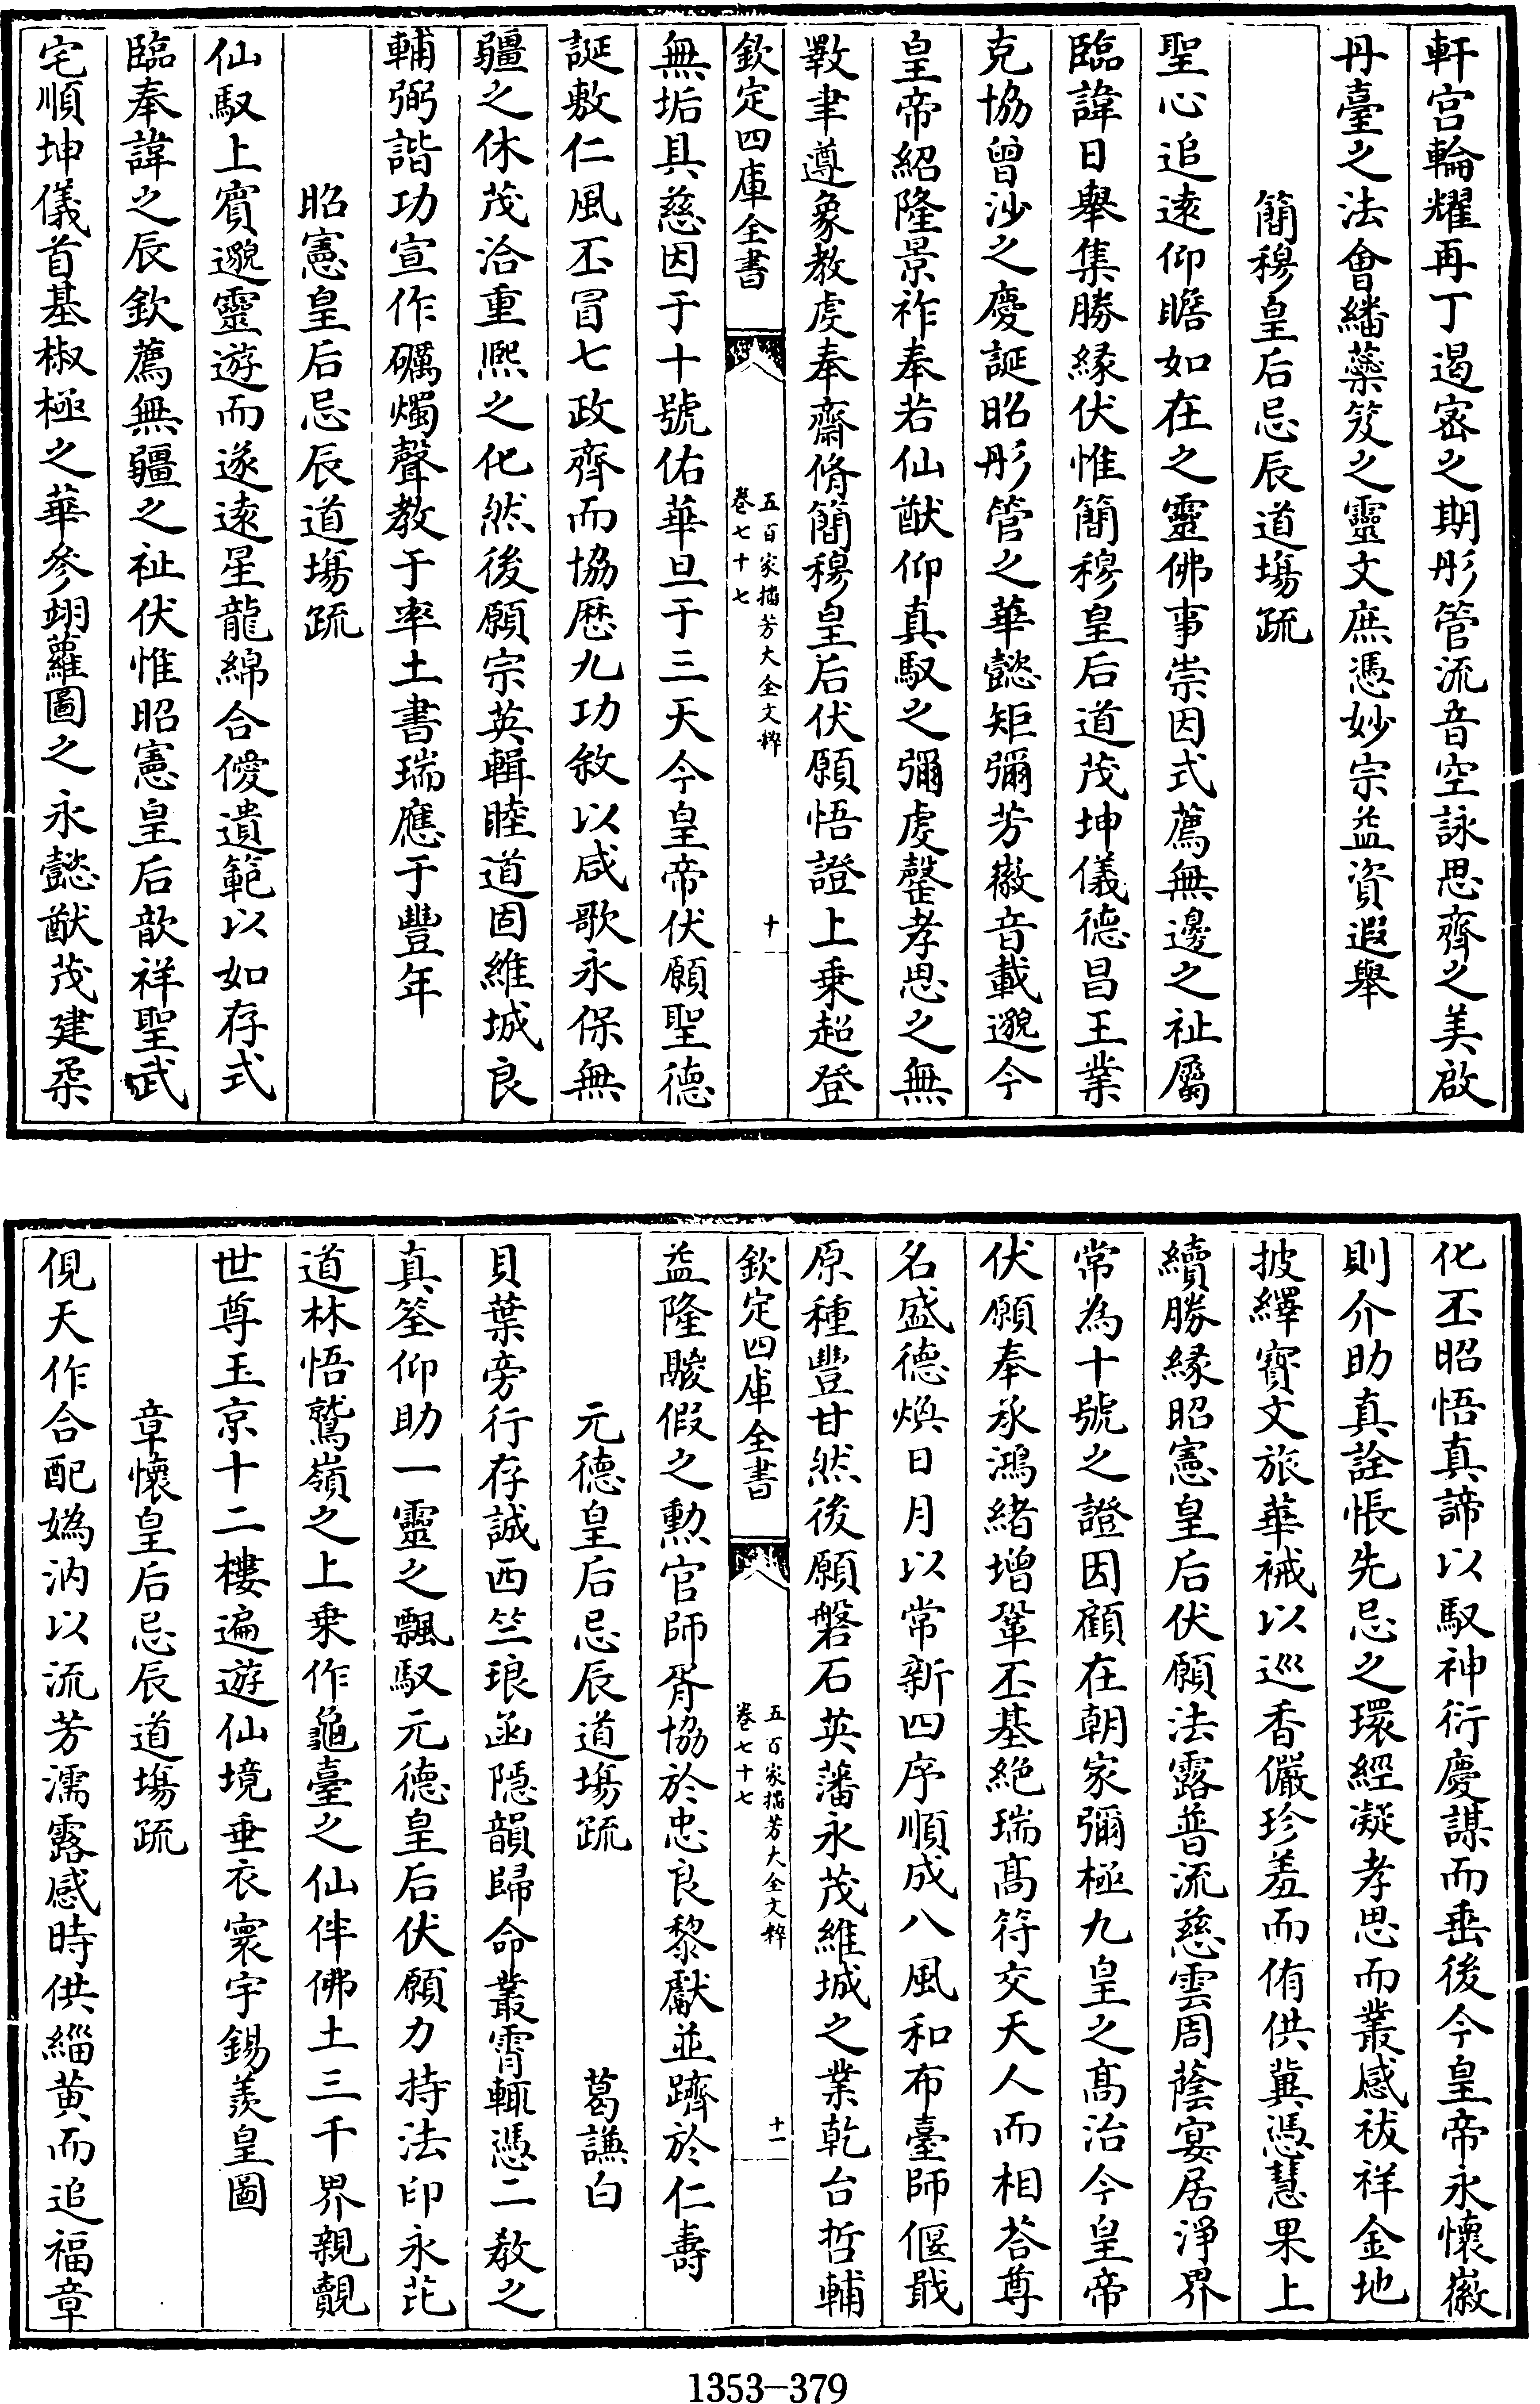 軒宫輪耀再丁遏宻之期彤管流音空詠思齊之美啟
丹臺之法㑹繙蘂笈之靈文庶憑妙宗益資遐舉
簡穆皇后忌辰道塲疏
聖心追逺仰瞻如在之靈佛事崇因式薦無邊之祉屬
臨諱日舉集勝縁伏惟簡穆皇后道茂坤儀德昌王業
克協曾沙之慶誕昭彤管之華懿矩彌芳徽音載邈今
皇帝紹隆景祚奉若仙猷仰真馭之彌䖍罄孝思之無
斁聿遵象教䖍奉齋脩簡穆皇后伏願悟證上乗超登
欽定四庫全書
五百家播芳大全文粹
卷七十七
十
無垢具慈因于十號佑華旦于三天今皇帝伏願聖德
誕敷仁風丕冒七政齊而協厯九功敘以咸歌永保無
疆之休茂洽重熈之化然後願宗英輯睦道固維城良
輔弼諧功宣作礪燭聲教于率土書瑞應于豐年
昭憲皇后忌辰道塲疏
仙馭上賓邈靈遊而遂逺星龍綿合僾遺範以如存式
臨奉諱之辰欽薦無疆之祉伏惟昭憲皇后歆祥聖武
宅順坤儀首基椒極之華參翊蘿圖之永懿猷茂建柔
化丕昭悟真諦以馭神衍慶謀而垂後今皇帝永懷徽
則介助真詮悵先忌之環經凝孝思而叢感祓祥金地
披繹寳文旅華祴以巡香儼珍羞而侑供冀憑慧果上
續勝縁昭憲皇后伏願法露普流慈雲周蔭宴居淨界
常為十號之證因顧在朝家彌極九皇之髙治今皇帝
伏願奉承鴻緒增鞏丕基絶瑞髙符交天人而相荅尊
名盛德煥日月以常新四序順成八風和布臺師偃戢
原種豐甘然後願磐石英藩永茂維城之業乾台哲輔
欽定四庫全書
五百家播芳大全文粹
卷七十七
十一
益隆駿假之勲官師胥協於忠良黎獻並躋於仁壽
元德皇后忌辰道塲疏　葛謙白
貝葉旁行存誠西竺琅函隠韻歸命叢霄輒憑二教之
真筌仰助一靈之飄馭元德皇后伏願力持法印永芘
道林悟鷲嶺之上乗作龜臺之仙伴佛土三千界親覿
世尊玉京十二樓遍遊仙境垂衣寰宇錫羡皇圖
章懷皇后忌辰道塲疏
俔天作合配嬀汭以流芳濡露感時供緇黄而追福章
1353-379